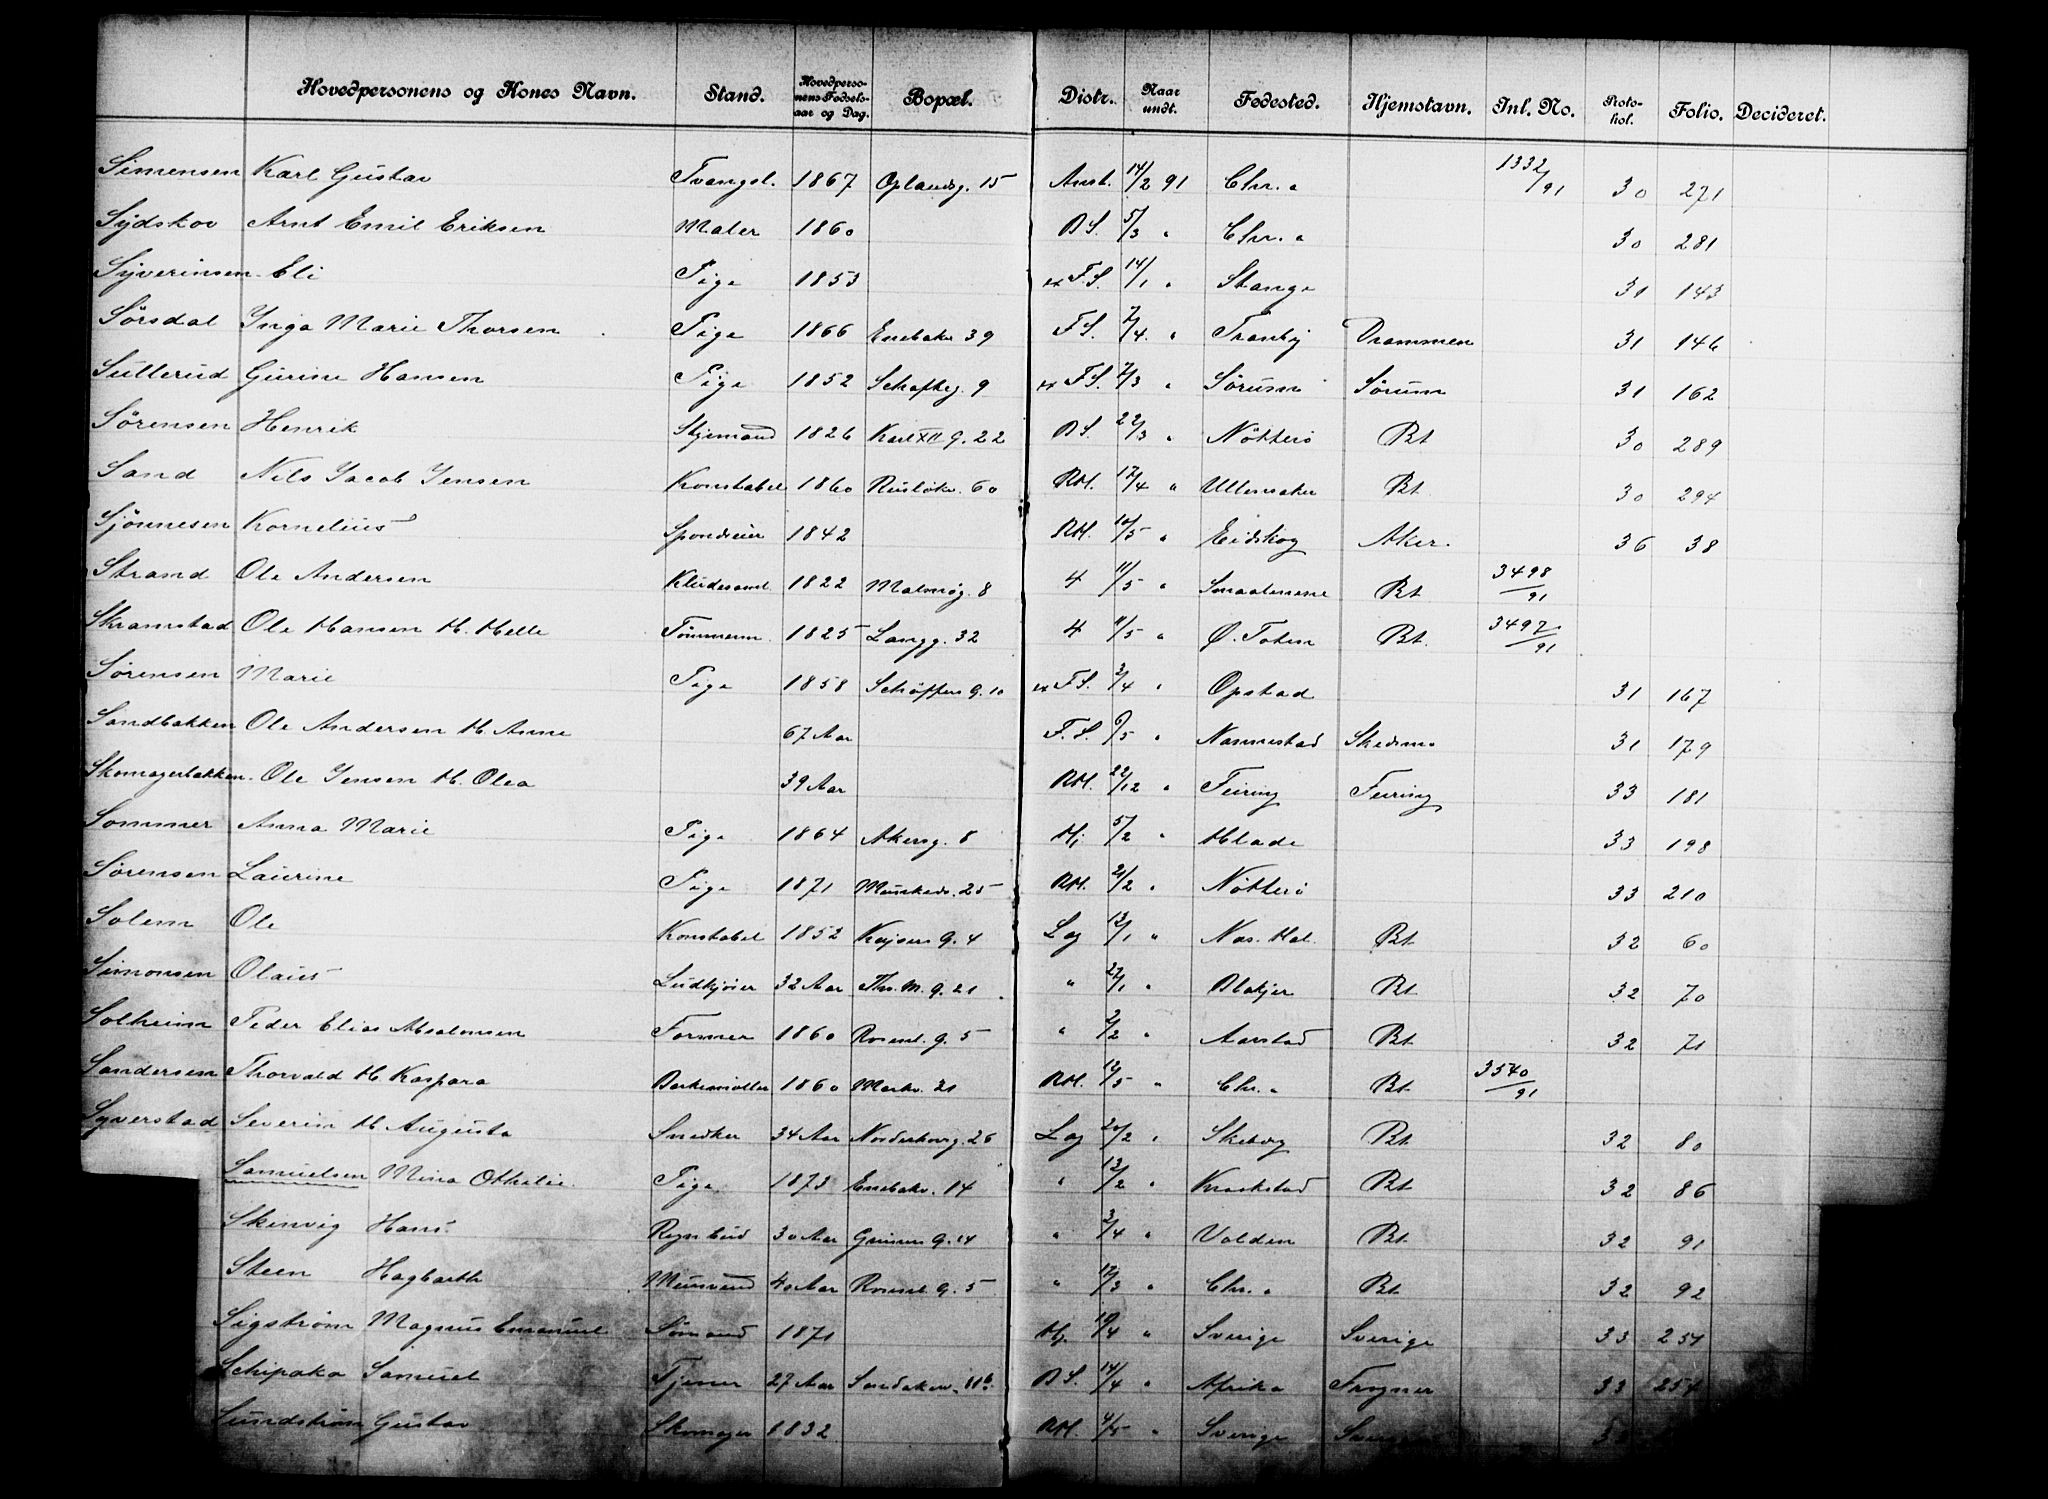 Hovedpersonens og Kones Navn. Stand. Hovedpersonens Fødselsaar og Dag. Bopæl. Distr. Naar undt. Fødested. Hjemstavn. Inl. No. Protokol. Folio. Decideret.
Simensen Karl Gustav Tvangsl. 1867 Oplandsg. 15 Anst. 14/2 91 Chr.a 1332/91 30 271
Sydskov Arnt Emil Eriksen Maler 1860 BS. 5/3 " Chr.a 30 281
Syverinsen Eli Pige 1853 F.S. 14/1 " Stange 31 143
Sørsdal Inga Marie Thorsen Pige 1866 Enebakv 39 F.S. 2/4 " Tranby Drammen 31 146
Sullerud Gurine Hansen Pige 1852 9 F.S. 2/3 " Sørum Sørum 31 162
Sørensen Henrik Styrmand 1826 Karl XII g. 22 BS. 22/3 " Nøtterø Bt 30 289
Sand Nils Jacob Jensen Konstabel 1860 Ruseløkv. 60 RH. 17/4 " Ullensaker Bt 30 294
Sjønnesen Kornelius 1842 RH. 10/5 " Eidskog Aker. 36 38
Strand Ole Andersen Kludesaml. 1822 Malmøg. 8 4 11/5 " Smaalenene Bt 3498/91
Skramstad Ole Hansen H. Helle Tømmerm 1825 Langg. 32 4 11/5 " Ø. Toten Bt. 3497/91
Sørensen Marie Pige 1858 Schøffers g. 10 F.S. 3/4 " Opstad 31 167
Sandbakken Ole Andersen H. Anne 67 Aar F.S. 6/5 " Nannestad Skedsmo 31 179
Skomagerbakken Ole Jensen H. Olea 39 Aar RH. 22/12 " Feiring Feiring 33 181
Sommer Anna Marie Pige 1864 Akersg. 8 Hj 5/2 " Hlade 33 198
Sørensen Laurine Pige 1871 Munkeds. 25 RH. 21/2 " Nøtterø 33 210
Solem Ole Konstabel 1852 Keysers g. 4 Lag 13/1 " Nas. Hal. Bt 32 60
Simonsen Olaus 32 Aar Ths. M. g. 21 " 27/1 " Blakjer Bt 32 70
Solheim Peder Elias Absalonsen Former 1860 Rosenl. g. 5 " 2/2 " Aarstad Bt 32 71
Sandersen Thorvald H. Kaspara 1860 Markv. 21 RH. 12/5 " Chr.a Bt 3540/91
Syverstad Severin H. Augusta Snedker 34 Aar Norderhovg. 26 Lag 20/2 " Bt 32 80
Samuelsen Mina Othelie Pige 1873 Enebakv. 14 " 13/2 " Kraakstad Bt 32 86
Skinvig Hans Regnbud 30 Aar g. 14 " 3/4 " Volden Bt 32 91
Steen Hagbarth Mursvend 40 Aar Rosenl. g. 5 " 17/3 " Chr.a Bt 32 92
Sigstrøm Magnus Emanuel Sømand 1871 Hj 10/4 " Sverige Sverige 33 251
Schipaka Samuel Tjener 27 Aar Sandakerv. 11b. BS. 14/4 " Afrika Frogner 33 254
Sundstrøm Gustav Skomager 1832 RH. 4/5 " Sverige